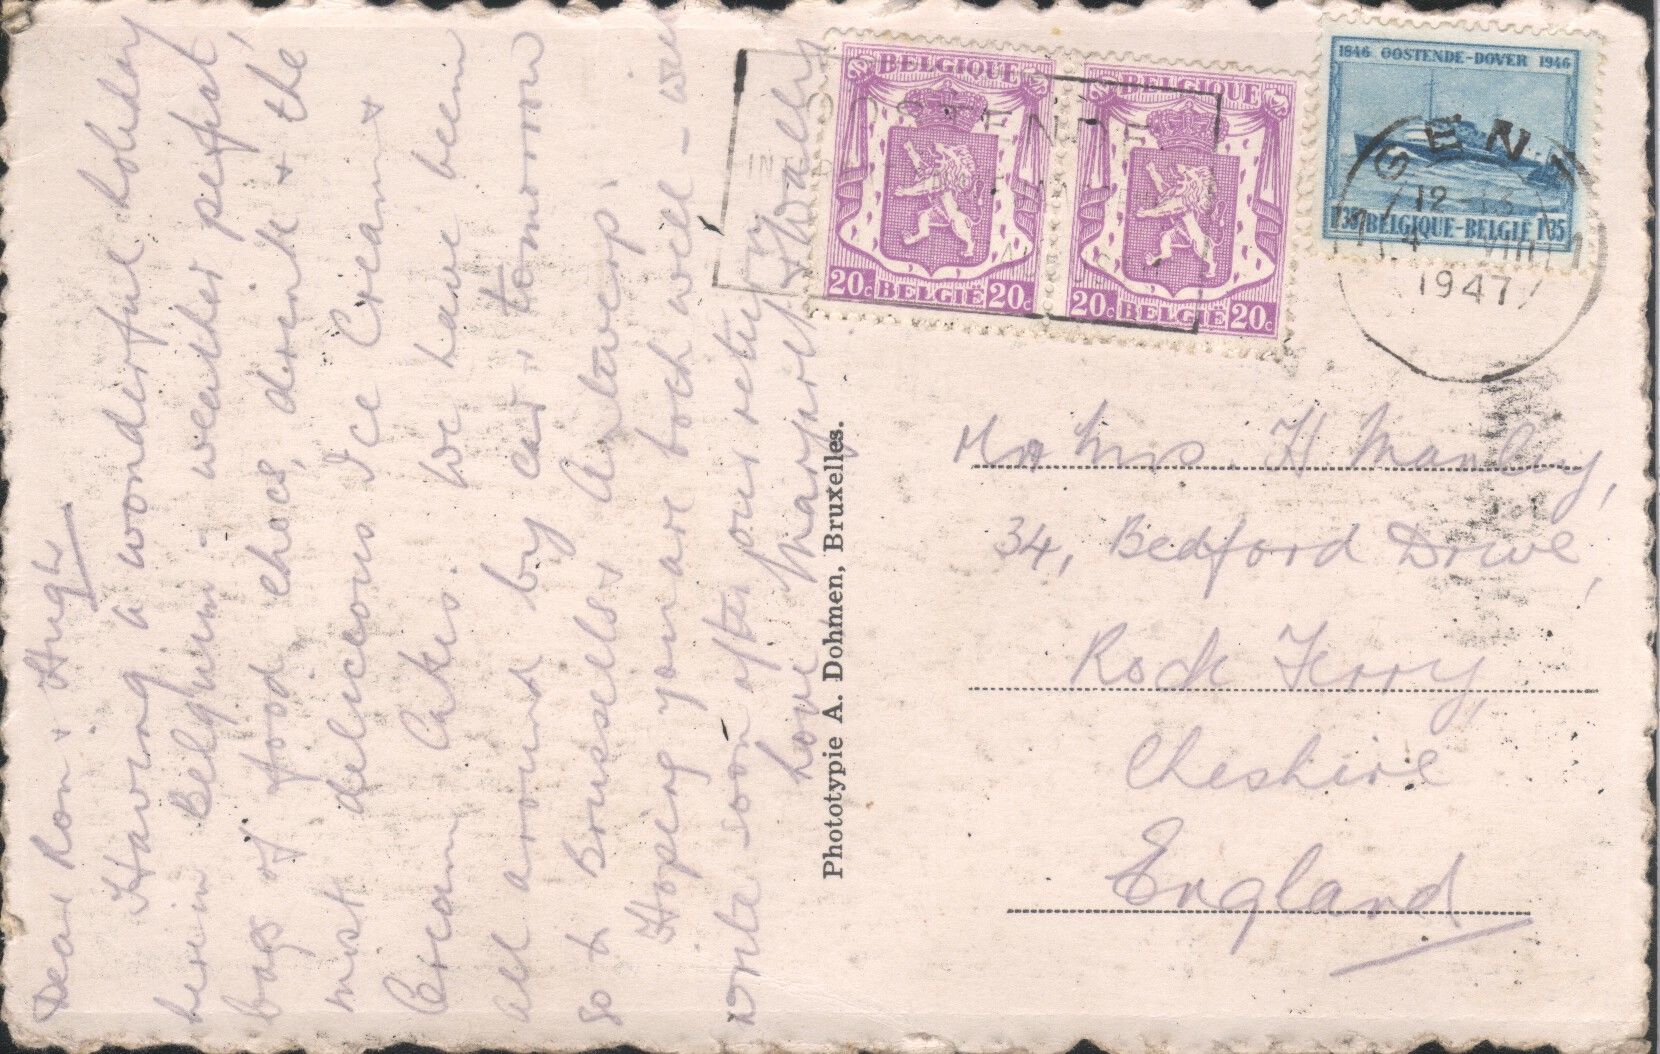 Dear Ron + Hugh
Having a wonderful holiday
here in Belgium - weather perfect,
bags of food, chocs, drink + the
most delicious Ice Cream +
Cream Cakes. We have been
all around by car + tomorrow
go to Brussells + Antwerp.
Hoping you are both well - will
write soon after our return
love Margaret + Wally
Phototypie A. Dohmen, Bruxelles.
BELGIQUE
20c BELGIË 20c
BELGIQUE
20c BELGIË 20c
1846 OOSTENDE-DOVER 1946
1.35 BELGIQUE-BELGIË 1.35
OOSTENDE
GENT
12-13
4 VIII
1947
Mrs. H Manley,
34, Bedford Drive,
Rock Ferry,
Cheshire
England